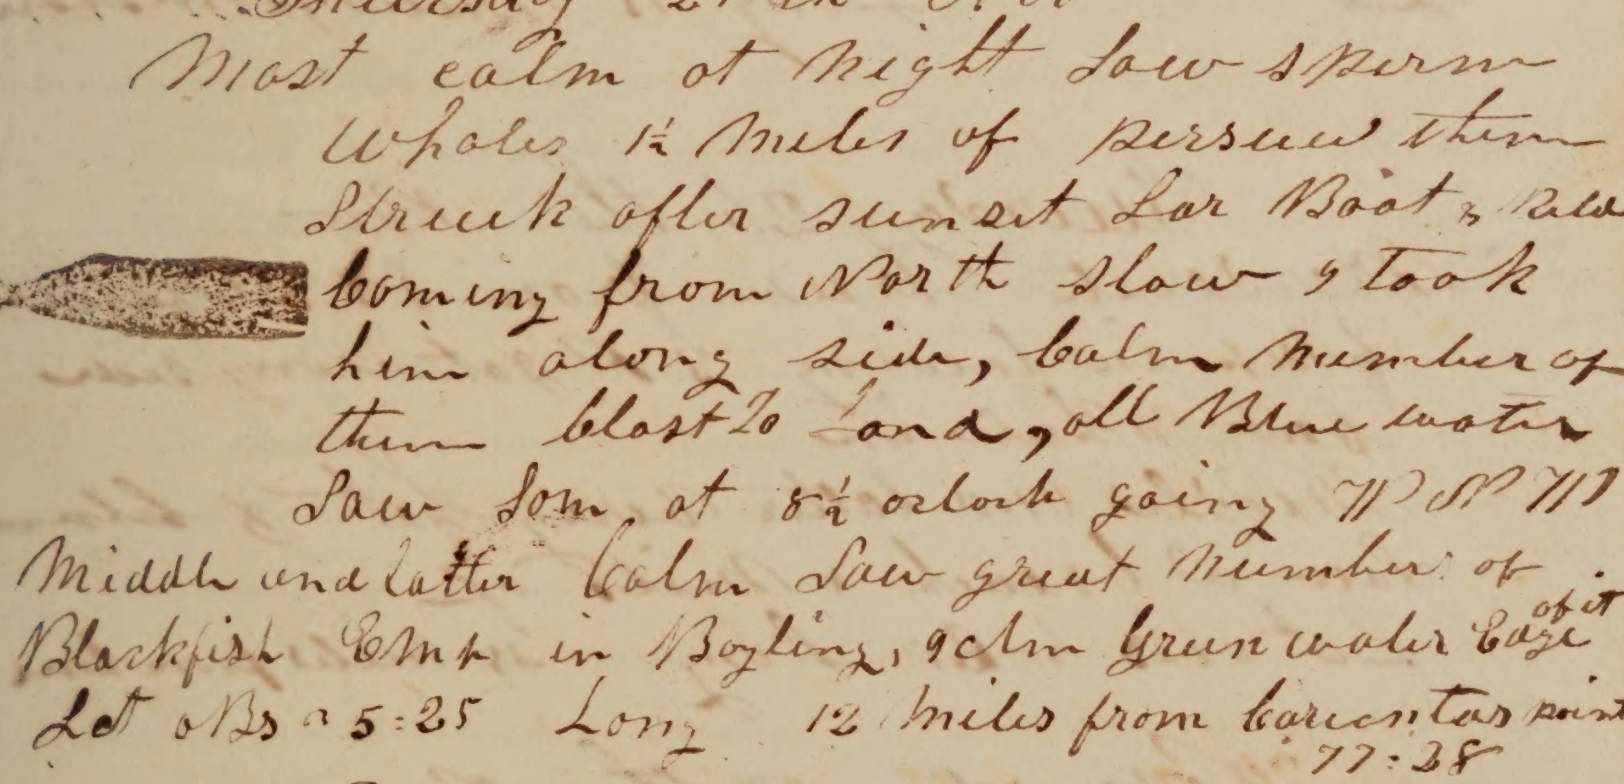 Thursday 21th
Most calm at Night Saw sperm
Whales 1½ Miles of persueed them
Struck after sunset Lar Boat &
Coming from North slow & Took
him along side, Calm Number of
them Close To Land, all Blue water
Saw Som at 8½ oclock going WNW
Middle and latter Calm Saw great Number of
Blackfish Emp in Boyling, & clm Green water Edge of it
Lat oBs 5:25 Long 12 Miles from Corientas point
77:28